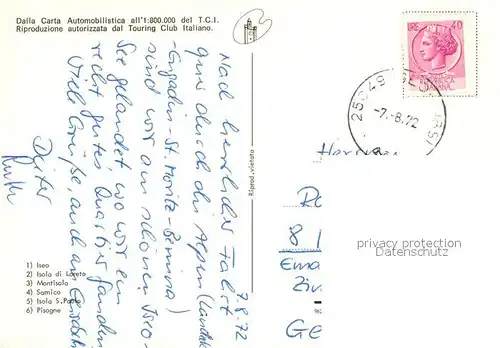 Dalla Carta Automobilistica all'1:800.000 del T.C.I.
Riproduzione autorizzata dal Touring Club Italiano.
7.8.72
Nach herrlicher Fahrt
quer durch die Alpen
Engadin-St. Moritz-Bernina)
sind wir am schönen Iseo-
See gelandet wo wir ein
recht gutes Quartier fanden
Viel Grüße, auch an
Dieter
Ruth
1) Iseo
2) Isola di Loreto
3) Montisola
4) Sarnico
5) Isola S. Paolo
6) Pisogne
Riprod. vietata
LIRE 40
25049 ISEO (BS)
-7.-8.72
8
privacy protection
Datenschutz